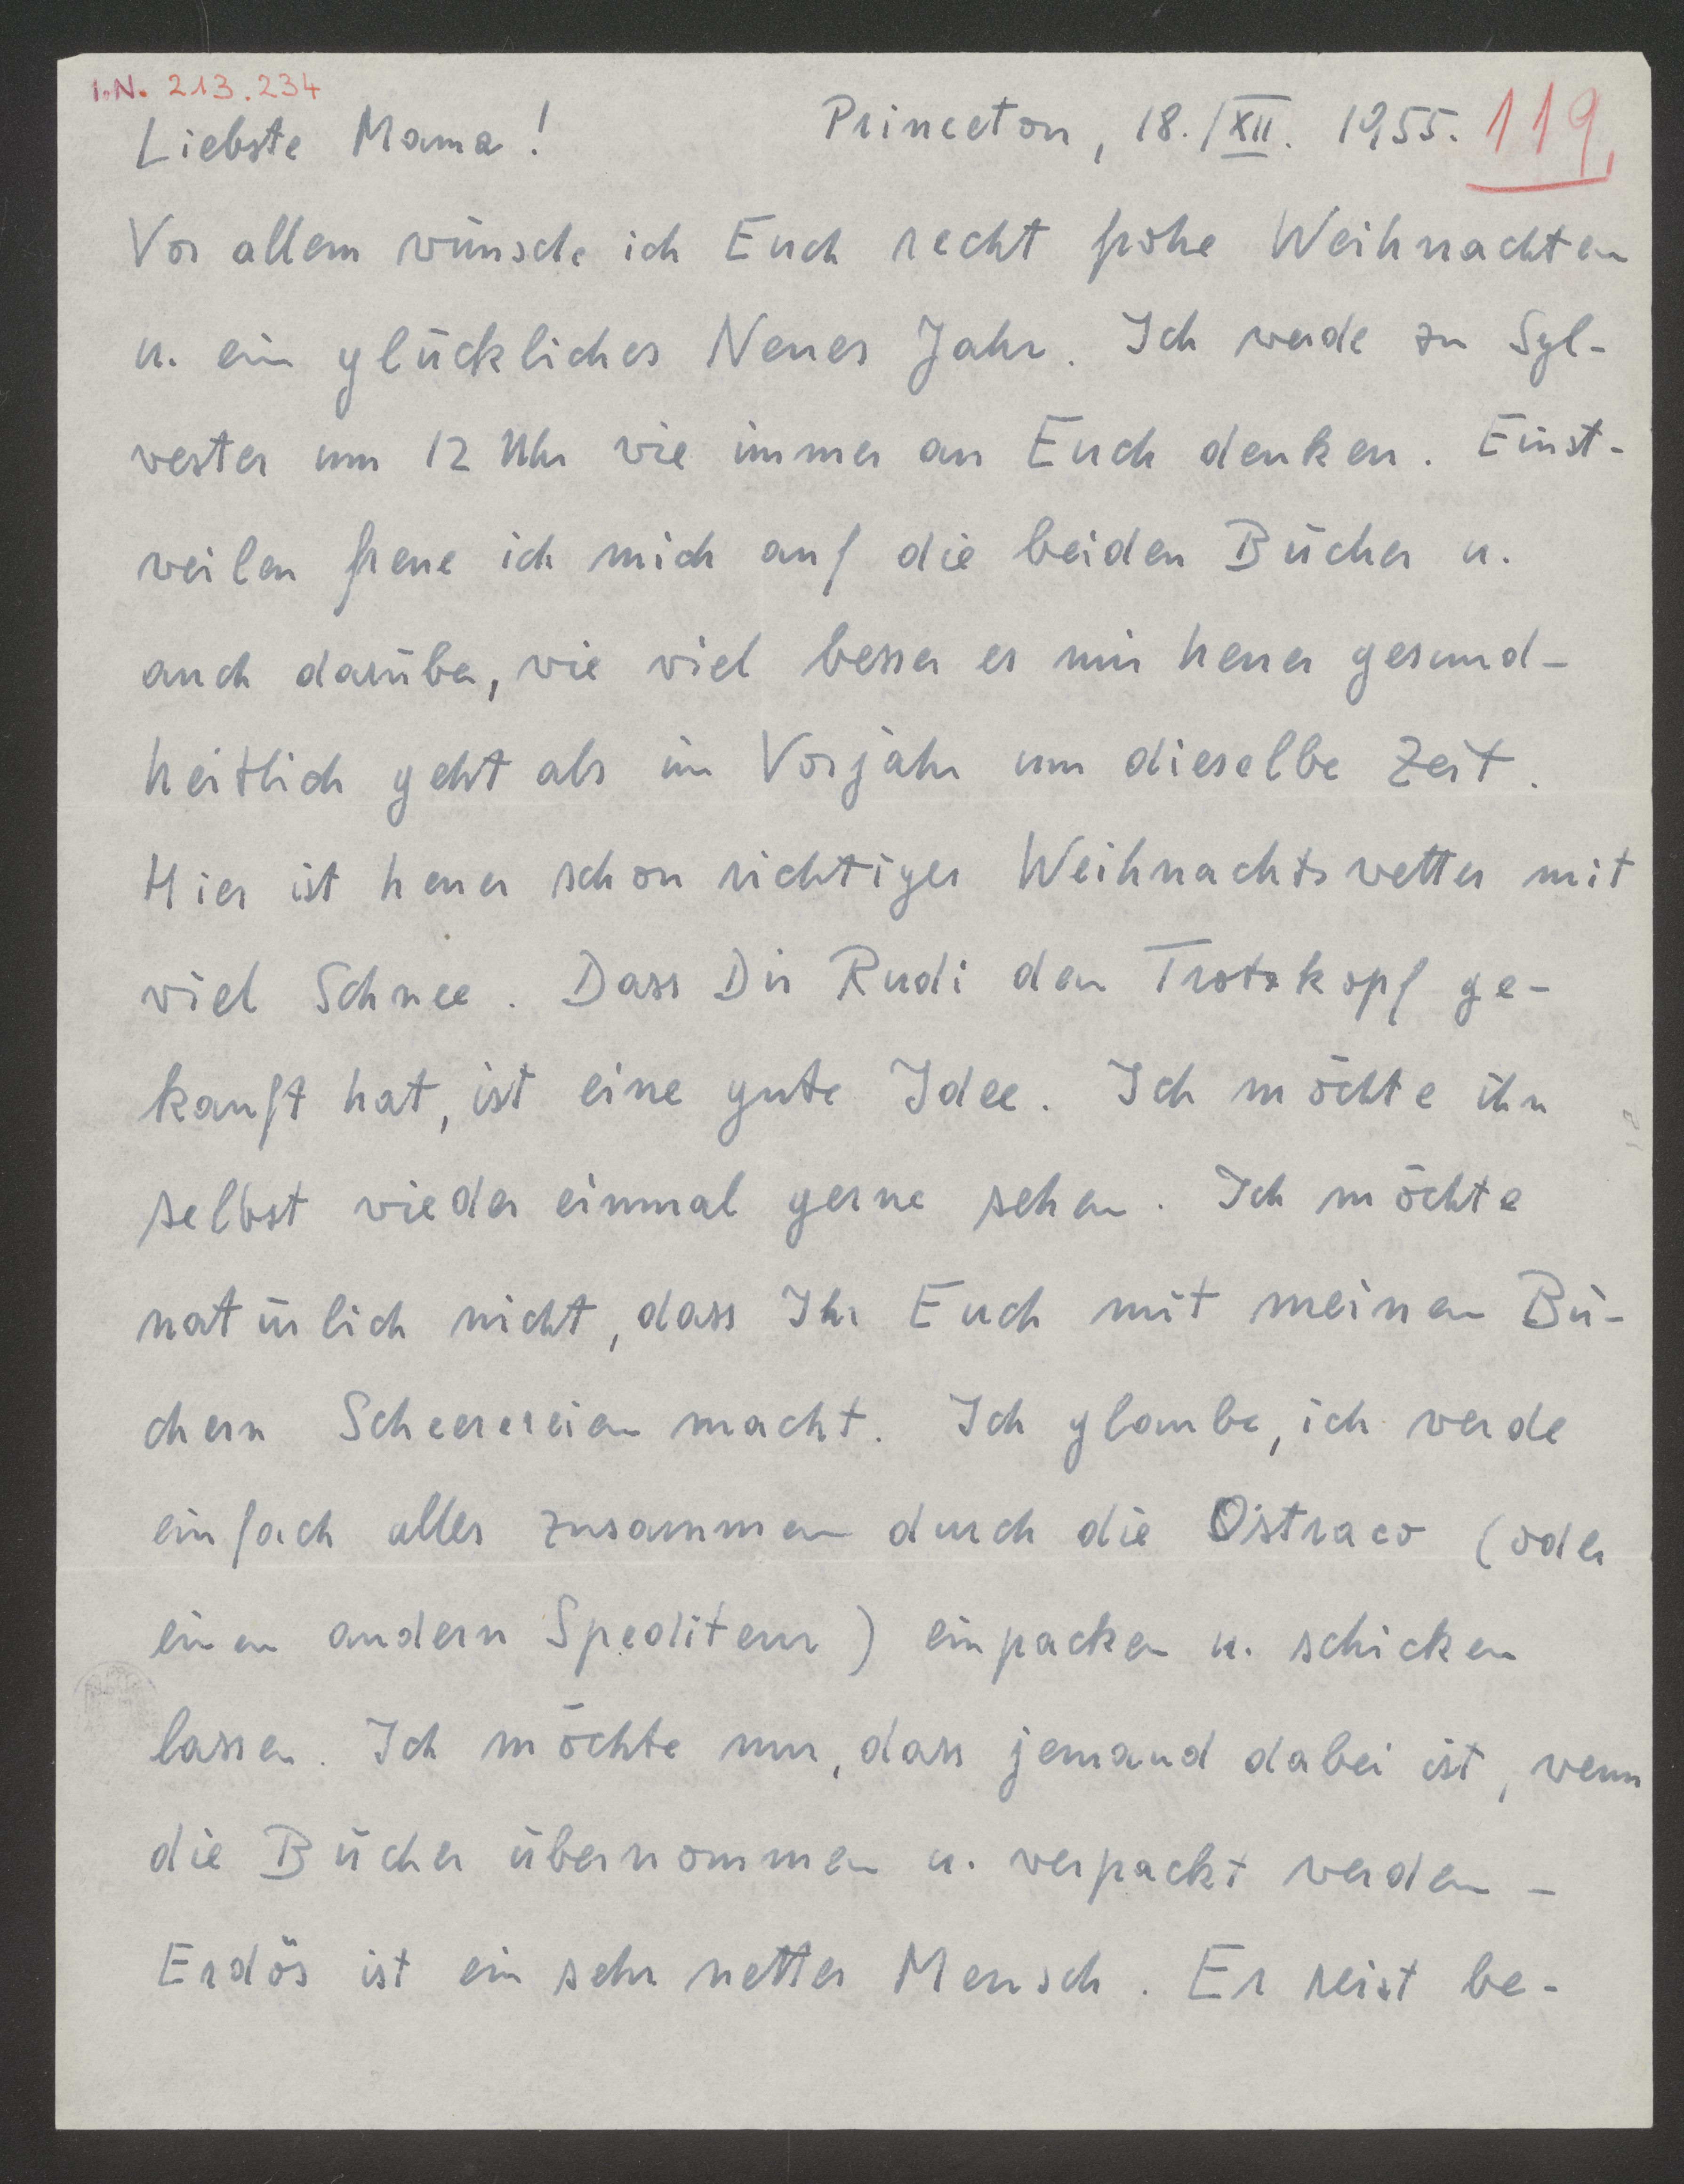 I.N. 213.234
Liebste Mama! Princeton, 18./XII. 1955. 119,
Vor allem wünsche ich Euch recht frohe Weihnachten
u. ein glückliches Neues Jahr. Ich werde zu Syl-
vester um 12 Uhr wie immer an Euch denken. Einst-
weilen freue ich mich auf die beiden Bücher u.
auch darüber, wie viel besser es mir heuer gesund-
heitlich geht als im Vorjahr um dieselbe Zeit.
Hier ist heuer schon richtiges Weihnachtswetter mit
viel Schnee. Dass Dir Rudi den Trotzkopf ge-
kauft hat, ist eine gute Idee. Ich möchte ihn
selbst wieder einmal gerne sehen. Ich möchte
natürlich nicht, dass Ihr Euch mit meinen Bü-
chern Scheerereien macht. Ich glaube, ich werde
einfach alles zusammen durch die Ostraco (oder
einen andern Spediteur) einpacken u. schicken
lassen. Ich möchte nur, dass jemand dabei ist, wenn
die Bücher übernommen u. verpackt werden –
Erdös ist ein sehr netter Mensch. Er reist be-